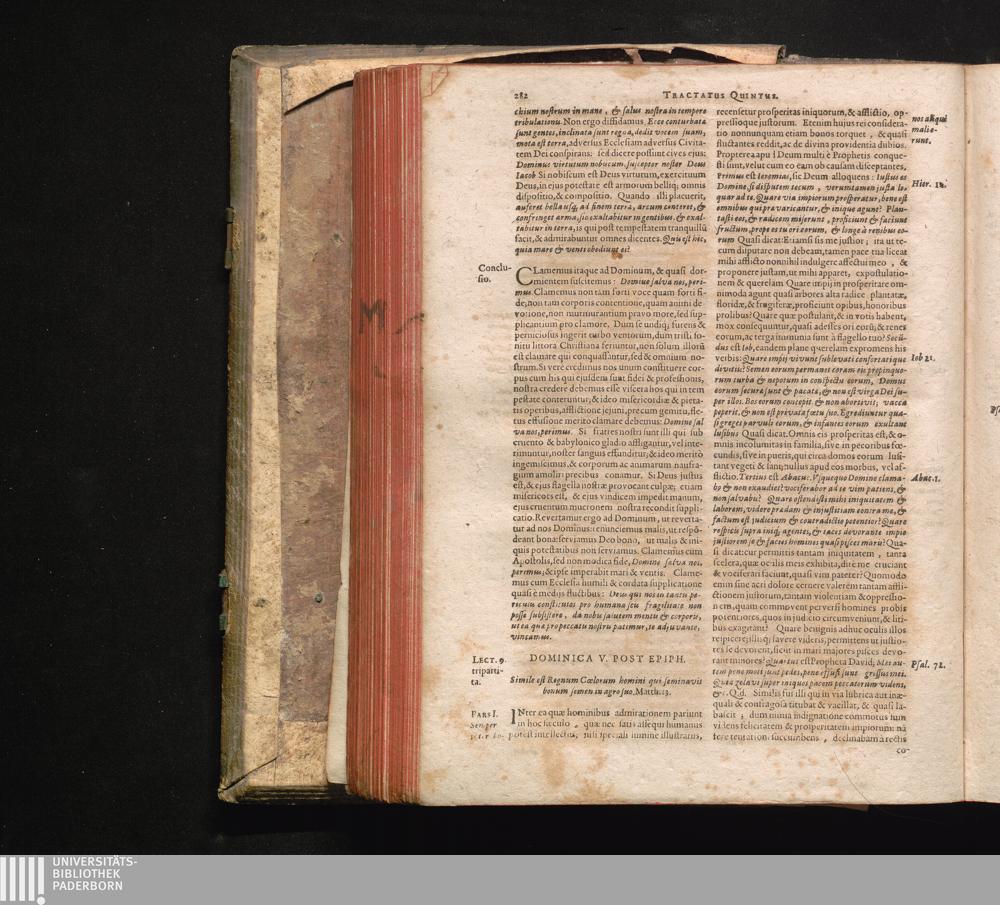 282
TRACTATUS QUINTUS.
chium nostrum in mane, & salus nostra in tempore
tribulationis. Non ergo diffidamus. Ecce conturbatæ
sunt gentes, inclinata sunt regna, dedit vocem suam,
mota est terra, adversus Ecclesiam adversus Civita-
tem Dei conspirans: sed dicere possunt cives ejus:
Dominus virtutum nobiscum, susceptor noster Deus
Iacob Si nobiscum est Deus virtutum, exercituum
Deus, in ejus potestate est armorum belliq; omnis
dispositio, & compositio. Quando illi placuerit,
auferet bella usq; ad finem terrà, arcum conteret, &
confringet arma, sic exaltabitur in gentibus & exal-
tabitur in terra, is qui post tempestatem tranquillū
facit, & admirabuntur omnes dicentes. Quis est hic,
quia mare & venti obediunt ei?
Conclu-
sio.
CLamemus itaque ad Dominum, & quasi dor-
mientem suscitemus: Domine salva nos, peri-
mus. Clamemus non tàm forti voce quam forti fi-
de, non tàm corporis contentione, quam animi de-
votione, non murmurantium pravo more, sed sup-
plicantium pro clamore. Dum se undiq; furens &
perniciosus ingerit turbo ventorum, dum tristi so-
nitu littora Christiana feriuntur, non solum illorū
est clamare qui conquassantur, sed & omnium no-
strum. Si vere credimus nos unum constituere cor-
pus cum his qui ejusdem sunt fidei & professionis,
nostra credere debemus esse viscera hos qui in tem
pestate conteruntur, & ideo misericordiæ & pieta-
tis operibus, afflictione jejunii, precum gemitu, fle-
tus effusione merito clamare debemus: Domine sal
va nos, perimus. Si fratres nostri sunt illi qui sub
cruento & babylonico gladio affliguntur, vel inte-
rimuntur, noster sanguis effunditur; & ideo meritò
ingemiscimus, & corporum ac animarum naufra-
gium amoliri precibus conamur. Si Deus justus
est, & ejus flagella nostræ provocant culpæ; etiam
misericors est, & ejus vindicem impedit manum,
ejus cruentum mucronem nostra recondit suppli-
catio. Revertamur ergo ad Dominum, ut reverta-
tur ad nos Dominus: renunciemus malis, ut respō-
deant bona: serviamus Deo bono, ut malis & ini-
quis potestatibus non serviamus. Clamemus cum
Apostolis, sed non modica fide, Domine salva nos,
perimus; & ipse imperabit mari & ventis. Clame-
mus cum Ecclesia humili & cordata supplicatione
quasi è medijs fluctibus: Deus qui nos in tantis pe-
riculis constitutos pro humana scis fragilitate non
posse subsistere, da nobis salutem mentis & corporis,
ut ea quæ pro peccatis nostris patimur, te adjuvante,
vincamus.
LECT. 9.
triparti-
ta.
DOMINICA V. POST EPIPH.
Simile est Regnum Cœlorum homini qui seminavit
bonum semen in agro suo, Matth. 13.
PARS I.
Semper
INter ea quæ hominibus admirationem pariunt
in hoc sæculo, quæ nec satis assequi humanus
potest intellectus, nisi speciali lumine illustratus,
recensetur prosperitas iniquorum, & afflictio, op-
pressioque justorum. Etenim hujus rei considera-
tio nonnunquam etiam bonos torquet, & quasi
fluctuantes reddit, ac de divina providentia dubios.
Propterea apud Deum multi è Prophetis conque-
sti sunt, velut cum eo eam ob causam disceptantes.
Primus est Ieremias, sic Deum alloquens: Iustus es
Domine, si disputem tecum, verumtamen justa lo-
quar ad te. Quare via impiorum prosperatur, bene est
omnibus qui prævaricantur, & inique agunt? Plan-
tasti eos, & radicem miserunt, proficiunt & faciunt
fructum, prope es tu ori eorum, & longè à renibus eo-
rum Quasi dicat: Etiamsi sis me justior, ita ut te-
cum disputare non debeam, tamen pace tua liceat
mihi afflicto nonnihil indulgere affectui meo, &
proponere justam, ut mihi apparet, expostulatio-
nem & querelam Quare impij in prosperitate om-
nimoda agunt quasi arbores alta radice plantatæ,
floridæ, & frugiferæ, proficiunt opibus, honoribus
prolibus? Quare quæ postulant, & in votis habent,
mox consequuntur, quasi adesses ori eorū; & renes
eorum, ac terga immunia sunt à flagello tuo? Secū-
dus est Iob, eandem plane querelam expromens his
verbis: Quare impij vivunt sublevati confortatique
divitiis? Semen eorum permanet coram eis propinquo-
rum turba & nepotum in conspectu eorum, Domus
eorum securæ sunt & pacatæ, & non est virga Dei su-
per illos. Bos eorum concepit & non abortivit; vacca
peperit, & non est privata fœtu suo. Egrediuntur qua-
si greges parvuli eorum, & infantes eorum exultant
lusibus Quasi dicat. Omnis eis prosperitas est, & o-
mnis incolumitas in familia, sive in pecoribus fœ-
cundis, sive in pueris, qui circa domos eorum lusi-
tant vegeti & lani; nullus apud eos morbus, vel af-
flictio. Tertius est Abacuc. Vsquequo Domine clama-
bo & non exaudies? vociferabor ad te vim patiens, &
non salvabis? Quare ostendisti mihi iniquitatem &
laborem, videre prædam & injustitiam contra me, &
factum est judicium & contradictio potentior? Quare
respicis supra iniq; agentes, & taces devorante impio
justiorem se & facies homines quasi pisces maris? Qua-
si dicat: cur permittis tantam iniquitatem, tanta
scelera, quæ oculis meis exhibita, dire me cruciant
& vociferari faciunt, quasi vim paterer? Quomodo
enim sine acri dolore cernere valerem tantam affli-
ctionem justorum, tantam violentiam & oppressio-
nem, quam commovent perversi homines probis
potentiores, quos in judicio circumveniunt, & liti-
bus exagitant? Quare benignis adhuc oculis illos
respicere; illisq; favere videris, permittens ut justio-
res se devorent, sicut in mari majores pisces devo-
rant minores? Quartus est Propheta David; Mei au-
tem pene moti sunt pedes, pene effusi sunt gressus mei.
Quia zelavi super iniquos pacem peccatorum videns,
&c. Q.d. Similis fui illi qui in via lubrica aut inæ-
quali & confragosa titubat & vacillat, & quasi la-
bascit; dum nimia indignatione commotus sum
videns felicitatem & prosperitatem impiorum: nā
fere tentationi succumbens, declinabam à rectis
co-
nos aliqui
malie-
runt.
Hier. 12.
Iob 21.
Abac. 1.
Psal. 72.
M
UNIVERSITÄTS-
BIBLIOTHEK
PADERBORN